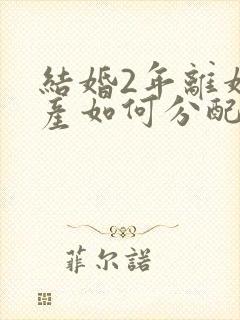 結婚2年離
產如何分配
菲尔諾